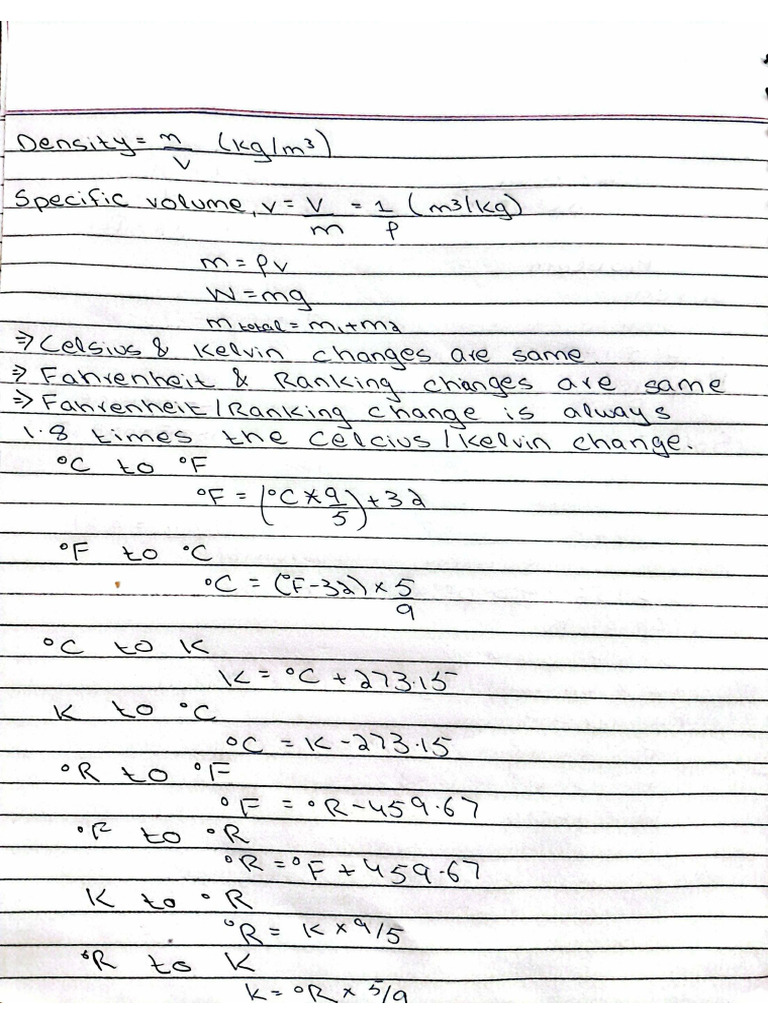 Density = m/V (kg/m³)
Specific volume, v = V/m = 1/ρ (m³/kg)
m = ρv
W = mg
m total = m₁ + m₂
⇒ Celsius & Kelvin changes are same
⇒ Fahrenheit & Ranking changes are same
⇒ Fahrenheit / Ranking change is always
1.8 times the Celcius / Kelvin change.
°C to °F
°F = (°C × 9/5) + 32
°F to °C
°C = (°F - 32) × 5/9
°C to K
K = °C + 273.15
K to °C
°C = K - 273.15
°R to °F
°F = °R - 459.67
°F to °R
°R = °F + 459.67
K to °R
°R = K × 9/5
°R to K
K = °R × 5/9